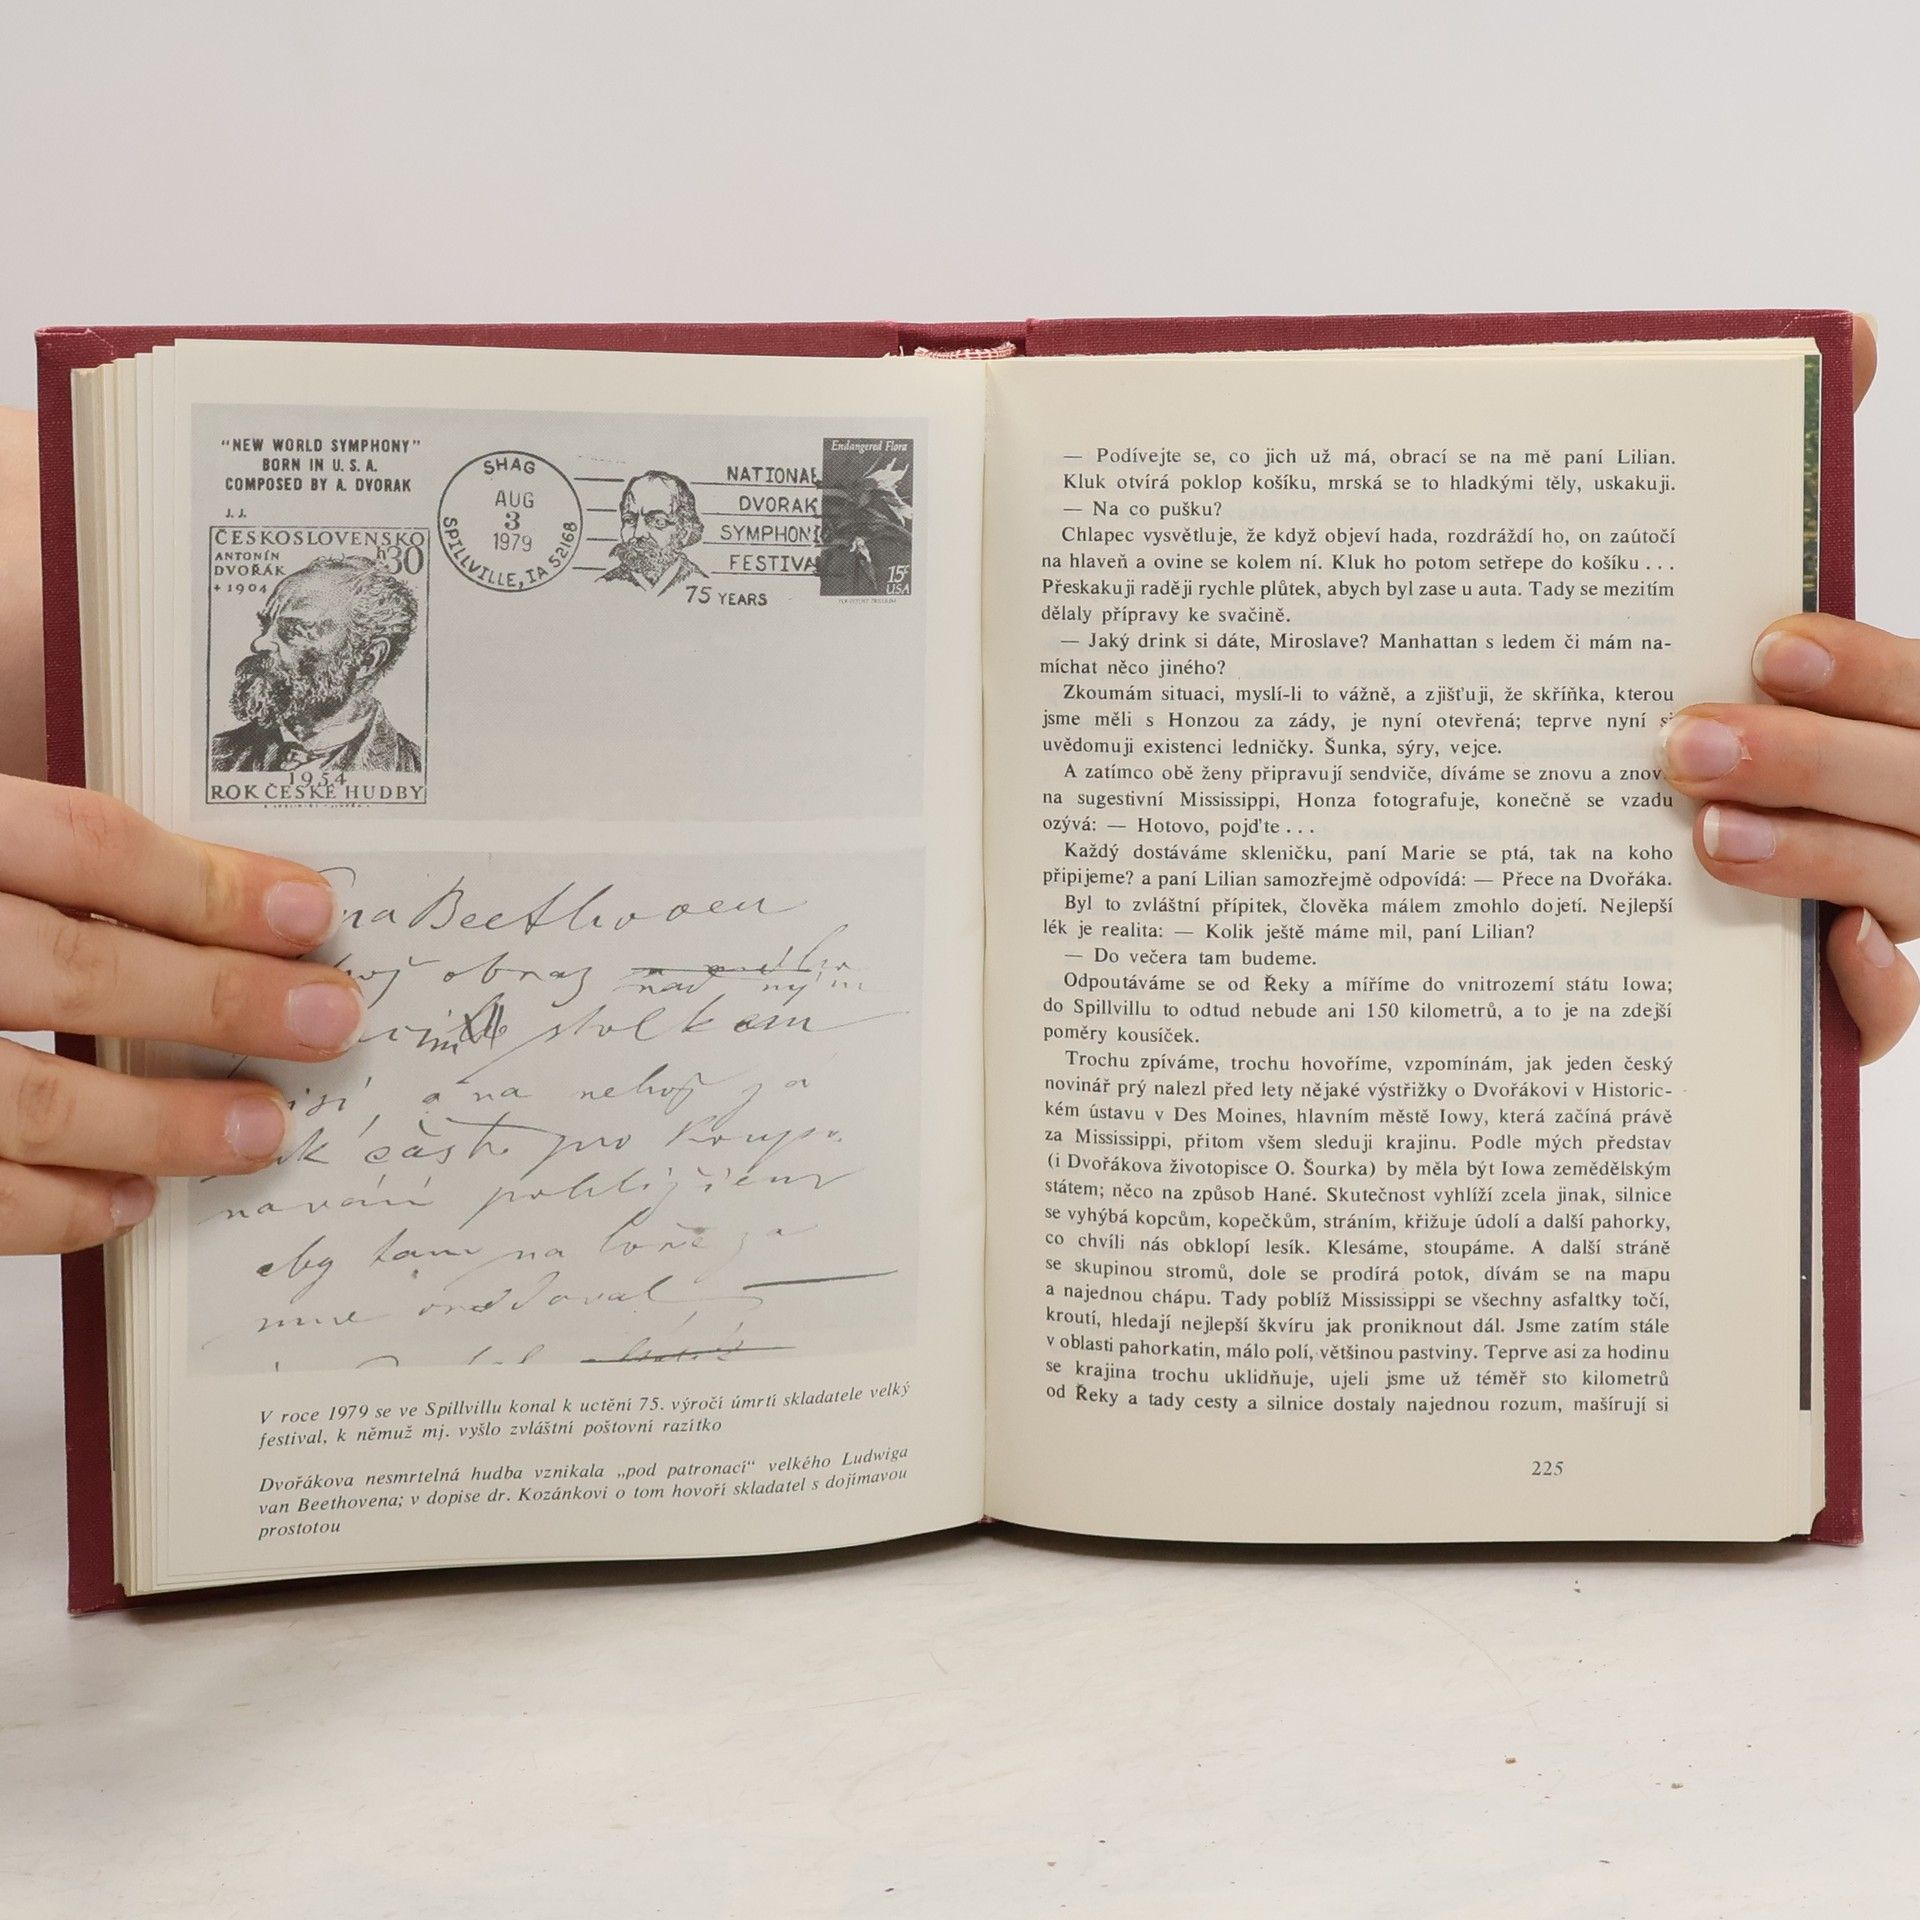 "NEW WORLD SYMPHONY"
BORN IN U. S. A.
COMPOSED BY A. DVORAK
J. J.
ČESKOSLOVENSKO
h30
ANTONÍN
DVOŘÁK
+ 1904
1954
ROK ČESKÉ HUDBY
SHAG
AUG
3
1979
SPILLVILLE, IA 52168
NATIONAL
DVORAK
SYMPHONI
FESTIVA
75 YEARS
Endangered Flora
15c
USA
na Beethoven
obraz
nad
stolkem
a na nehož já
část pro
aby tam na
mne orodoval
V roce 1979 se ve Spillvillu konal k uctění 75. výročí úmrtí skladatele velký
festival, k němuž mj. vyšlo zvláštní poštovní razítko
Dvořákova nesmrtelná hudba vznikala „pod patronací“ velkého Ludwiga
van Beethovena; v dopise dr. Kozánkovi o tom hovoří skladatel s dojímavou
prostotou
— Podívejte se, co jich už má, obrací se na mě paní Lilian.
Kluk otvírá poklop košíku, mrská se to hladkými těly, uskakuji.
— Na co pušku?
Chlapec vysvětluje, že když objeví hada, rozdráždí ho, on zaútočí
na hlaveň a ovine se kolem ní. Kluk ho potom setřepe do košíku . . .
Přeskakuji raději rychle plůtek, abych byl zase u auta. Tady se mezitím
dělaly přípravy ke svačině.
— Jaký drink si dáte, Miroslave? Manhattan s ledem či mám na-
míchat něco jiného?
Zkoumám situaci, myslí-li to vážně, a zjišťuji, že skříňka, kterou
jsme měli s Honzou za zády, je nyní otevřená; teprve nyní si
uvědomuji existenci ledničky. Šunka, sýry, vejce.
A zatímco obě ženy připravují sendviče, díváme se znovu a znovu
na sugestivní Mississippi, Honza fotografuje, konečně se vzadu
ozývá: — Hotovo, pojďte . . .
Každý dostáváme skleničku, paní Marie se ptá, tak na koho
připijeme? a paní Lilian samozřejmě odpovídá: — Přece na Dvořáka.
Byl to zvláštní přípitek, člověka málem zmohlo dojetí. Nejlepší
lék je realita: — Kolik ještě máme mil, paní Lilian?
— Do večera tam budeme.
Odpoutáváme se od Řeky a míříme do vnitrozemí státu Iowa;
do Spillvillu to odtud nebude ani 150 kilometrů, a to je na zdejší
poměry kousíček.
Trochu zpíváme, trochu hovoříme, vzpomínám, jak jeden český
novinář prý nalezl před lety nějaké výstřižky o Dvořákovi v Historic-
kém ústavu v Des Moines, hlavním městě Iowy, která začíná právě
za Mississippi, přitom všem sleduji krajinu. Podle mých představ
(i Dvořákova životopisce O. Šourka) by měla být Iowa zemědělským
státem; něco na způsob Hané. Skutečnost vyhlíží zcela jinak, silnice
se vyhýbá kopcům, kopečkům, stráním, křižuje údolí a další pahorky,
co chvíli nás obklopí lesík. Klesáme, stoupáme. A další stráně
se skupinou stromů, dole se prodírá potok, dívám se na mapu
a najednou chápu. Tady poblíž Mississippi se všechny asfaltky točí,
kroutí, hledají nejlepší škvíru jak proniknout dál. Jsme zatím stále
v oblasti pahorkatin, málo polí, většinou pastviny. Teprve asi za hodinu
se krajina trochu uklidňuje, ujeli jsme už téměř sto kilometrů
od Řeky a tady cesty a silnice dostaly najednou rozum, mašírují si
225